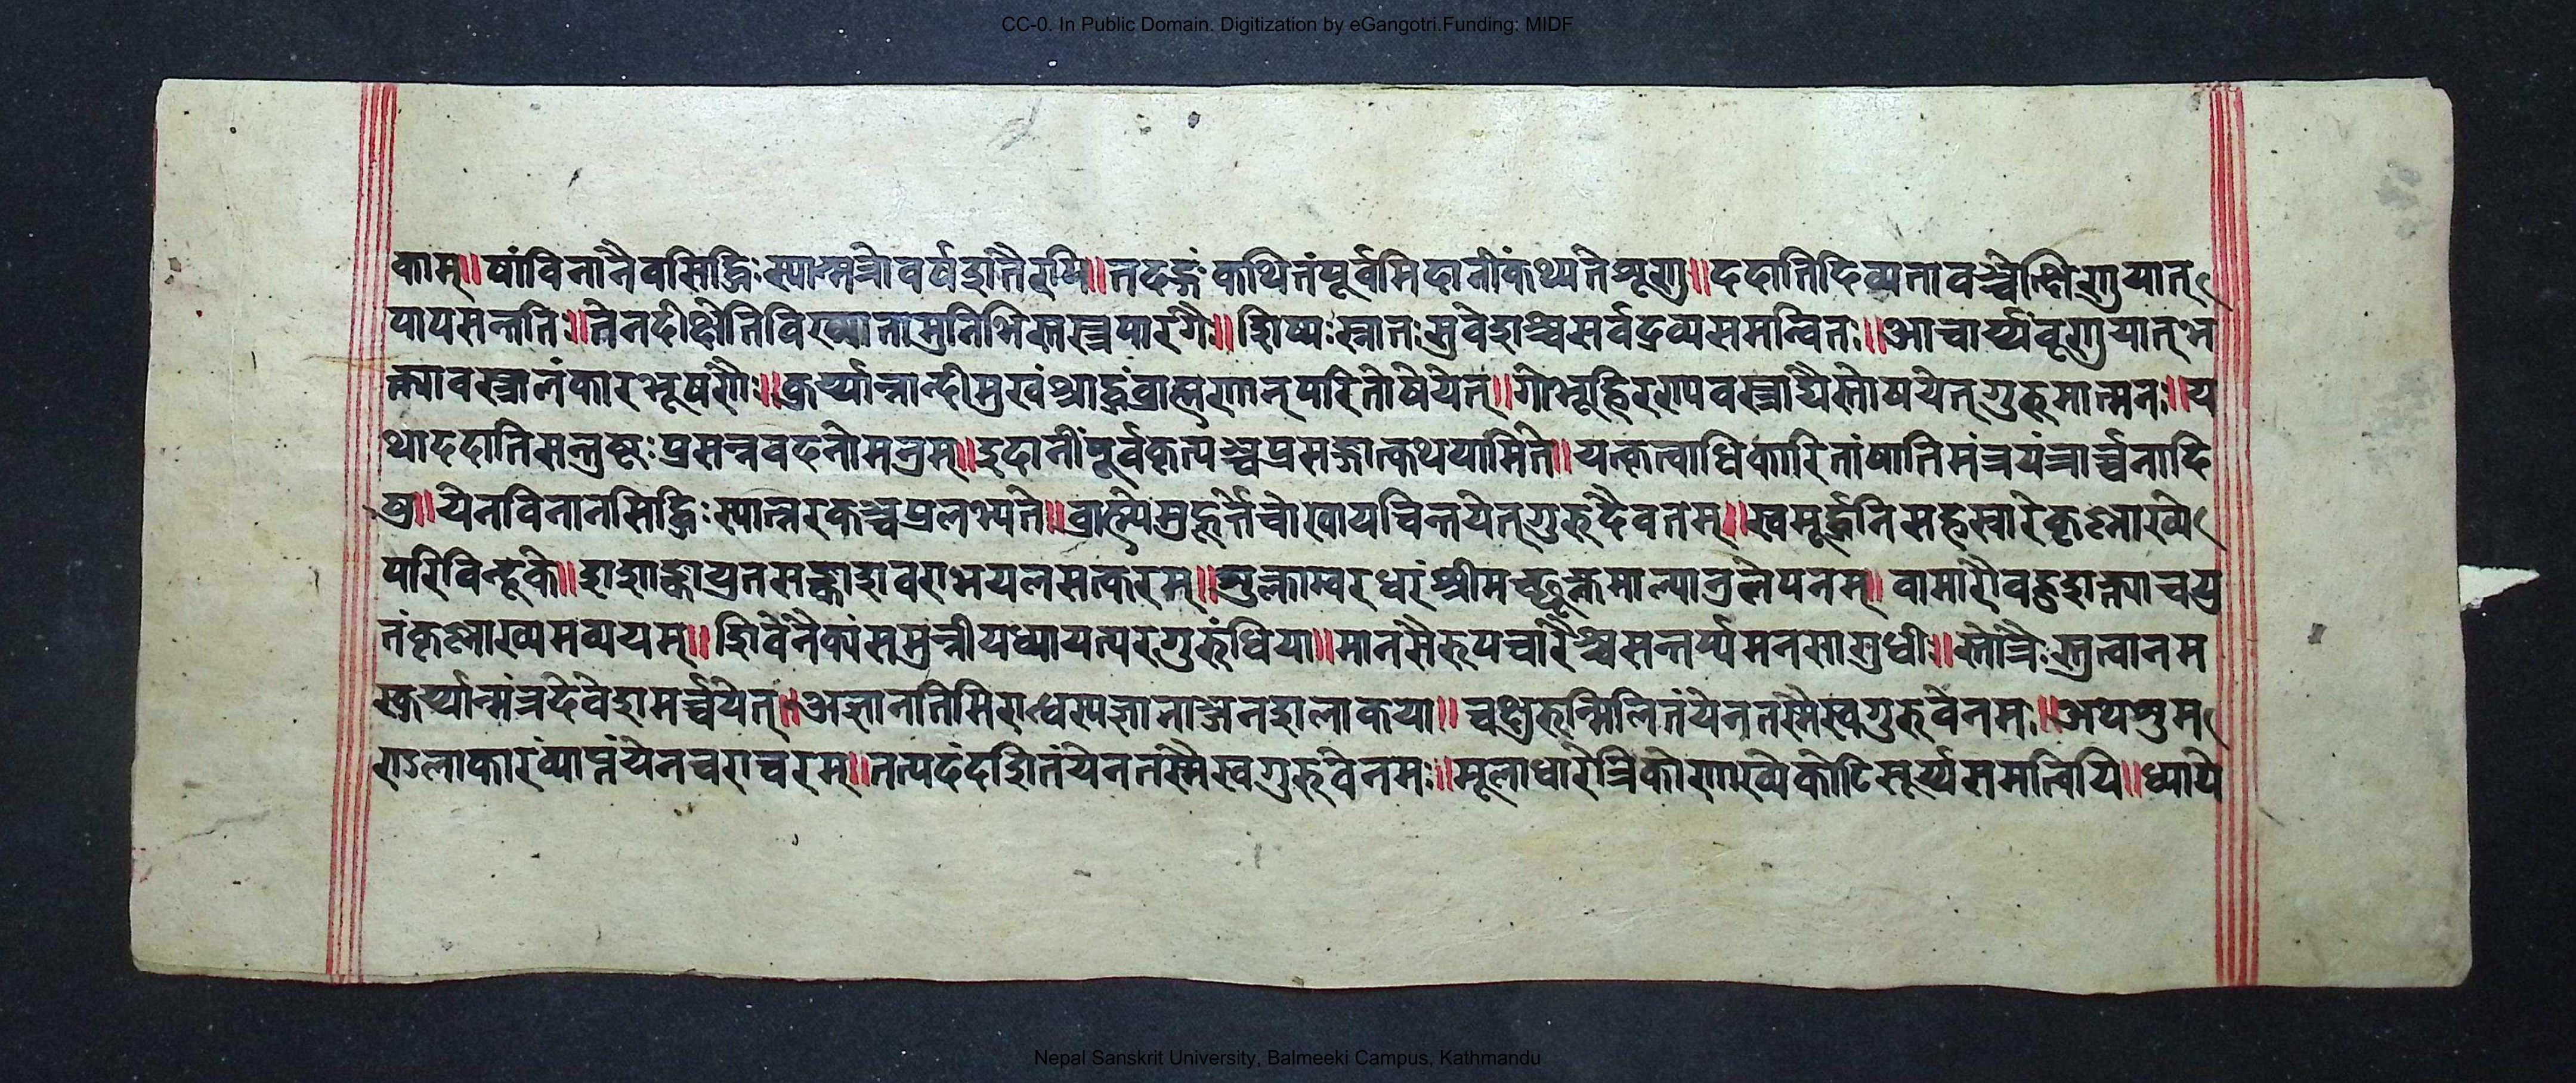 CC-0. In Public Domain. Digitization by eGangotri.Funding: MIDF
काम्॥षांविनानैवसिद्धिःस्यान्मन्त्रोवर्षशतैरपि॥तदङ्गंकथितंपूर्वमिदानींकथ्यतेशृणु॥ददातिदिव्यतावच्चेत्क्षिणुयात्
पापसन्ततिः॥तेनदीक्षेतिविख्यातामुनिभिस्तन्त्रपारगैः॥शिष्यःस्नातःसुवेशश्चसर्वद्रव्यसमन्वितः॥आचार्य्यंवृणुयात्भ
क्त्यावस्त्रालंकारभूषणैः॥कुर्य्यान्नान्दीमुखंश्राद्धंब्राह्मणान्परितोषयेत्॥गोभूहिरण्यवस्त्राद्यैस्तोषयेत्गुरुमात्मनः॥य
थाददातिसन्तुष्टःप्रसन्नवदनोमनुम्॥इदानींपूर्वकृत्यञ्चप्रसङ्गात्कथयामिते॥यत्कृत्वाधिकारितांयातिमंत्रयंत्रार्च्चनादि
षु॥येनविनानसिद्धिःस्यान्नरकञ्चप्रलभ्यते॥ब्राह्म्येमुहूर्त्तेचोत्थायचिन्तयेत्गुरुदैवतम्॥स्वमूर्द्धनिसहस्रारेकृष्णाख्ये
परिविन्दुके॥शशाङ्कायुतसङ्काशवराभयलसत्करम्॥शुक्लाम्बरधरंश्रीमच्छुक्लमाल्यानुलेपनम्॥वामोरौवज्रशक्त्याचयु
तंकृष्णाख्यमव्ययम्॥शिवेनैक्यंसमुन्नीयध्यायेत्परगुरुंधिया॥मानसैरुपचारैश्चसन्तर्प्यमनसासुधीः॥स्तोत्रैःस्तुत्वानम
स्कुर्य्यान्मंत्रदेवेशमर्च्चयेत्॥अज्ञानतिमिरान्धस्यज्ञानाञ्जनशलाकया॥चक्षुरुन्मिलितंयेनतस्मैस्वगुरुवेनमः॥अथशुम
ण्डलाकारंव्याप्तंयेनचराचरम्॥तत्पदंदर्शितंयेनतस्मैस्वगुरुवेनमः॥मूलाधारेत्रिकोणाख्येकोटिसूर्य्यसमत्विषि॥ध्याये
Nepal Sanskrit University, Balmeeki Campus, Kathmandu